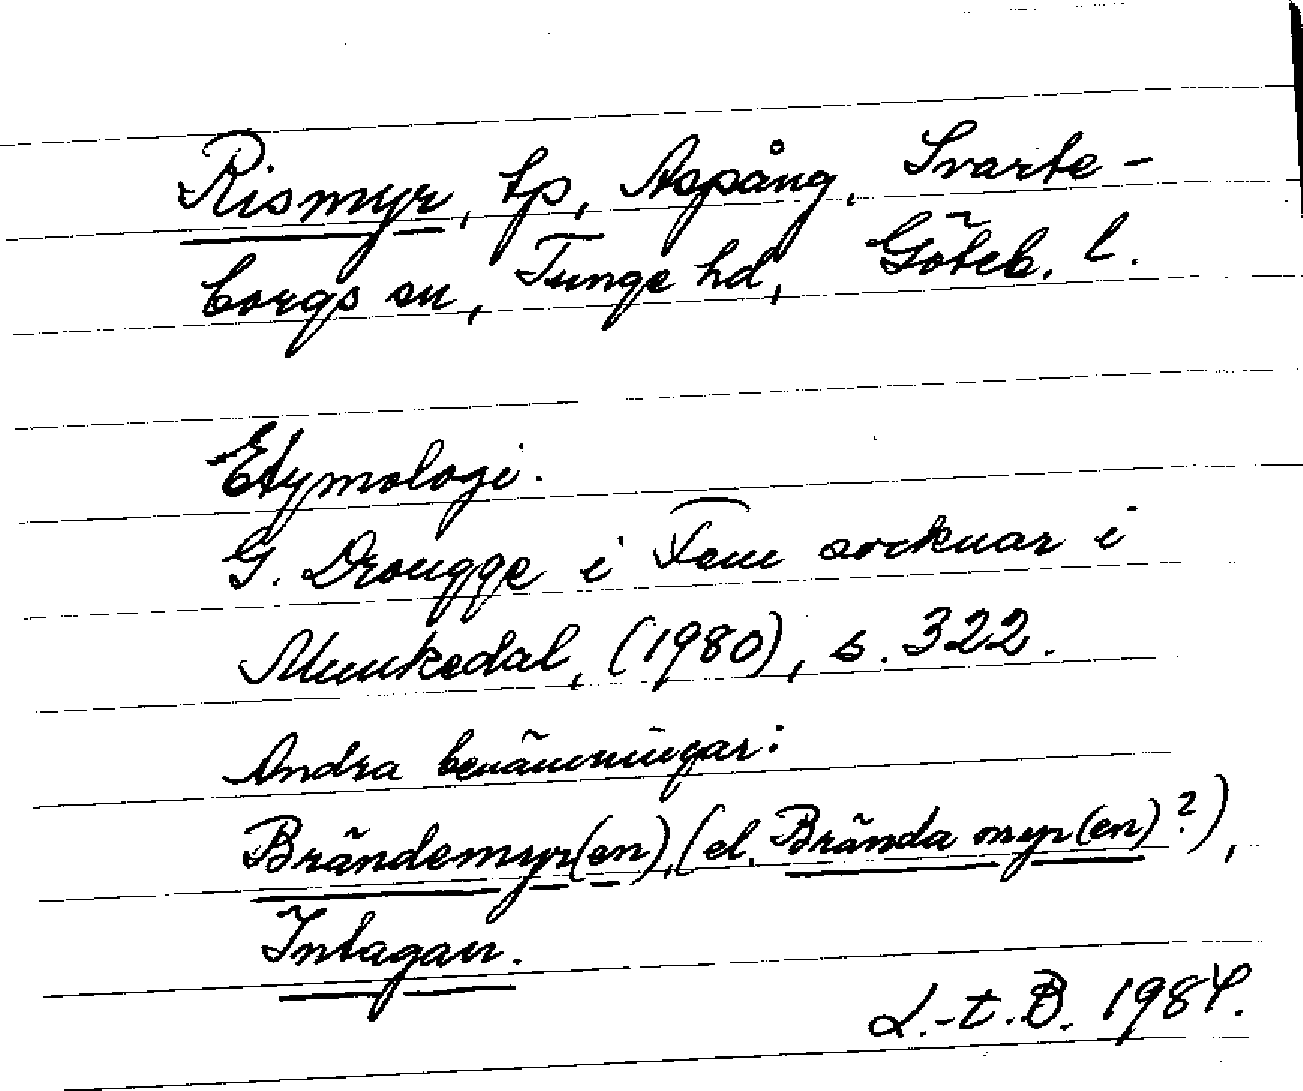 Rismyr, tp, Aspång, Svarte-
borgs sn, Tunge hd, Göteb. l.
Etymologi.
G. Drougge i Fem socknar i
Munkedal, (1980), s. 322.
Andra benämningar:
Brändemyr(en), (el. Brända myr(en)?),
Intagan.
L.-t. B. 1984.